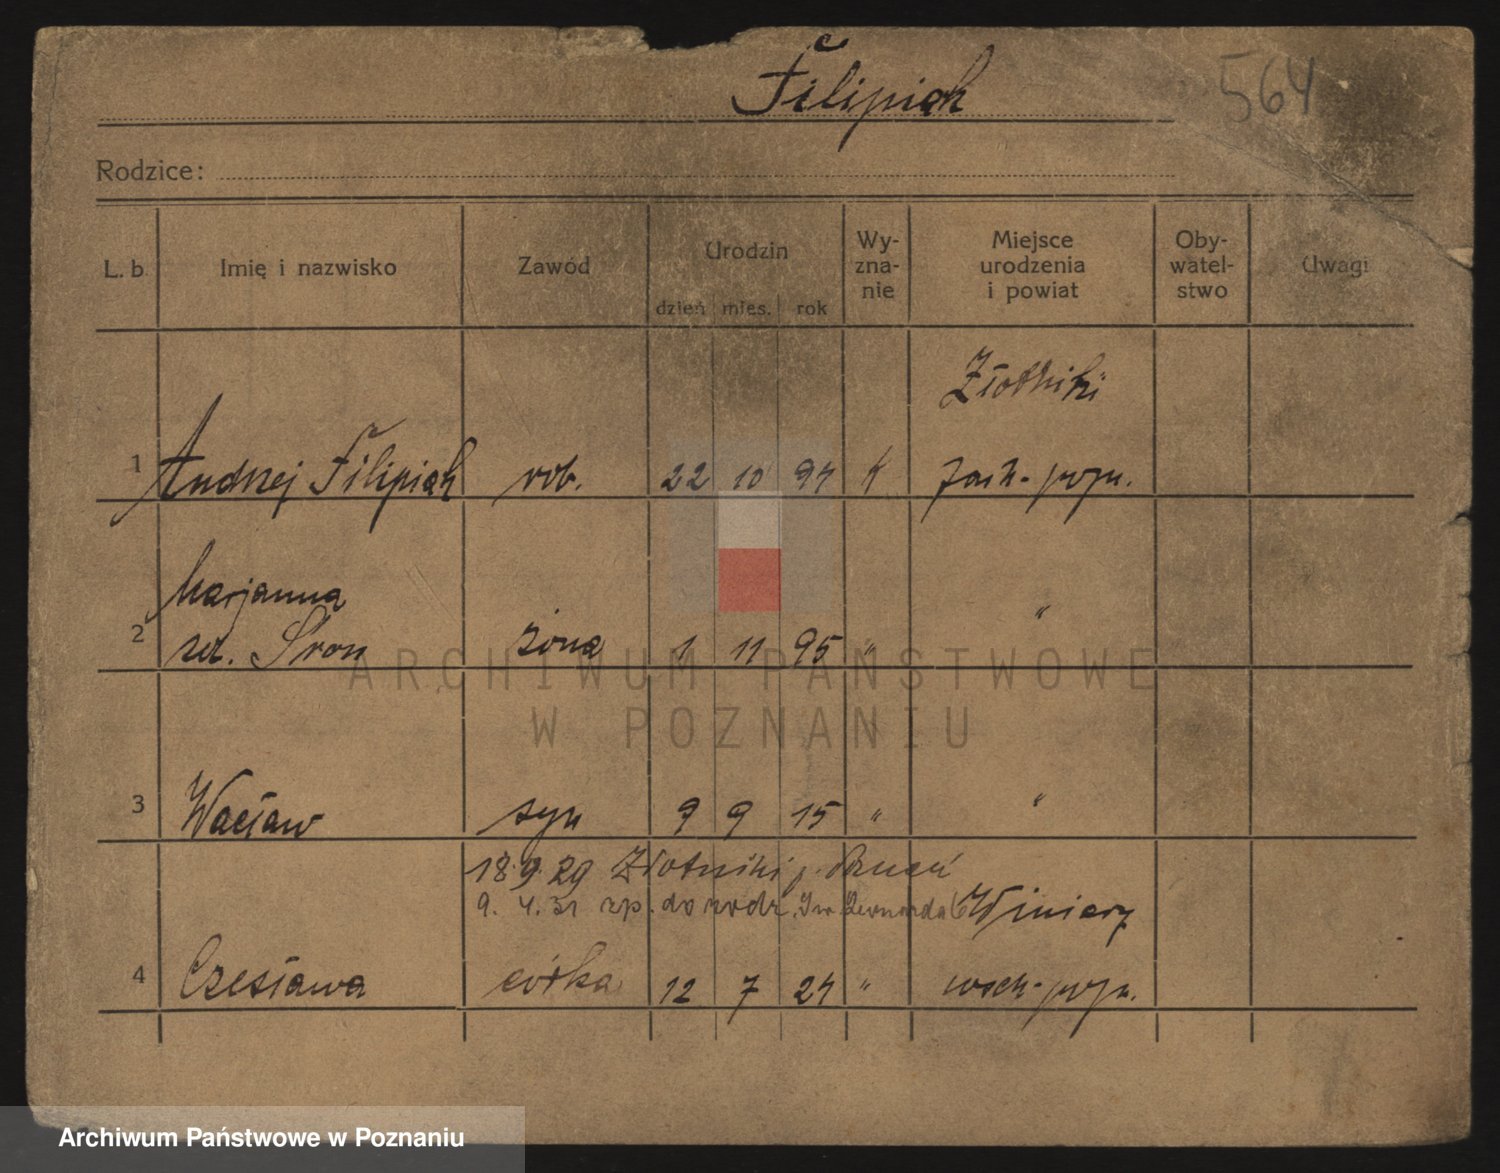 Filipiak 564
Rodzice:
L. b. Imię i nazwisko Zawód Urodzin dzień mies. rok Wy-zna-nie Miejsce urodzenia i powiat Oby-watel-stwo Uwagi
Złotniki
1 Andrzej Filipiak rob. 22 10 94 k zach-pozn.
Marjanna
2 zd. Sron żona 1 11 95 " "
3 Wacław syn 9 9 15 " "
18.9.29 Złotniki p. Poznań
9. 4. 31 zp. do rodz. Św. Bernarda 6 Winiary
4 Czesława córka 12 7 24 " wsch-pozn.
ARCHIWUM PAŃSTWOWE
W POZNANIU
Archiwum Państwowe w Poznaniu